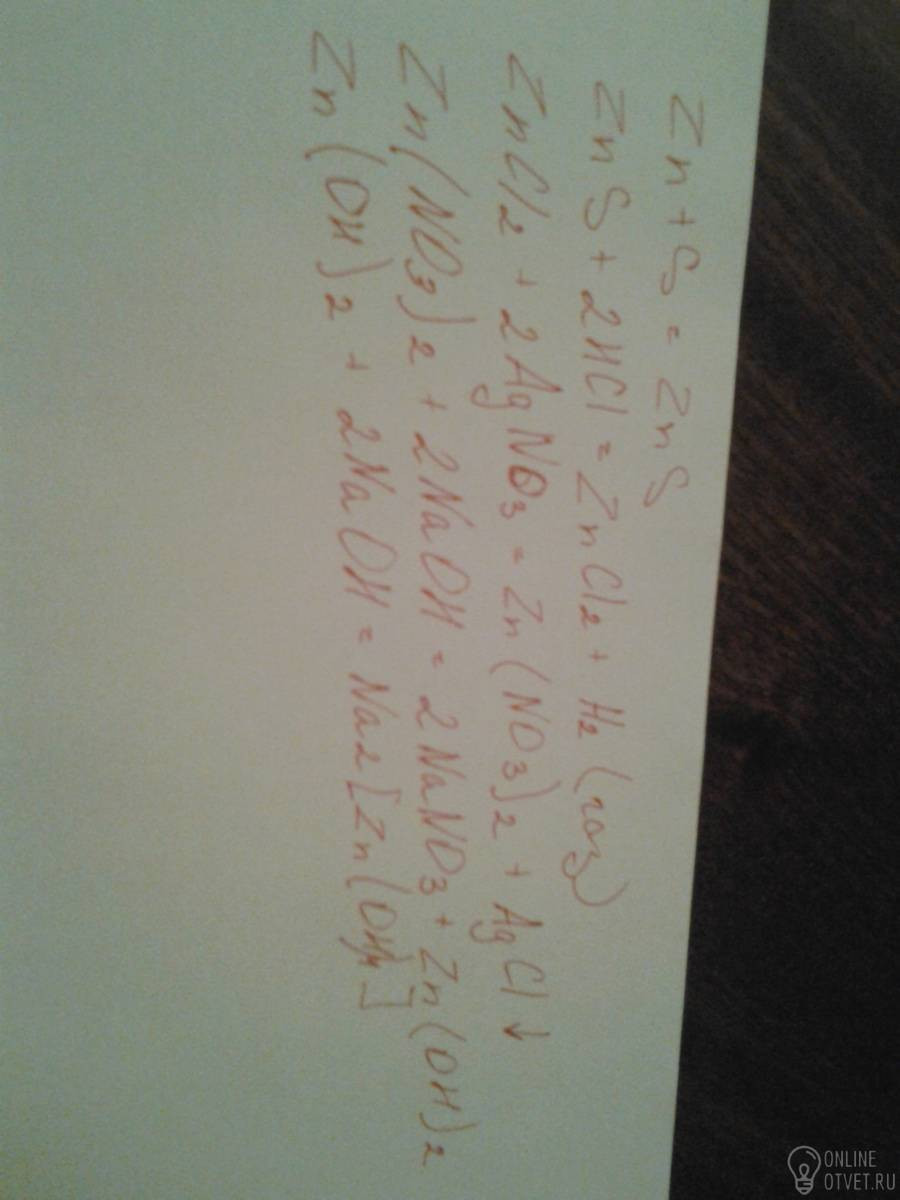 Zn + S = ZnS
ZnS + 2HCl = ZnCl2 + H2 (газ)
ZnCl2 + 2AgNO3 = Zn(NO3)2 + AgCl↓
Zn(NO3)2 + 2NaOH = 2NaNO3 + Zn(OH)2
Zn(OH)2 + 2NaOH = Na2[Zn(OH)4]
ONLINE
OTVET.RU